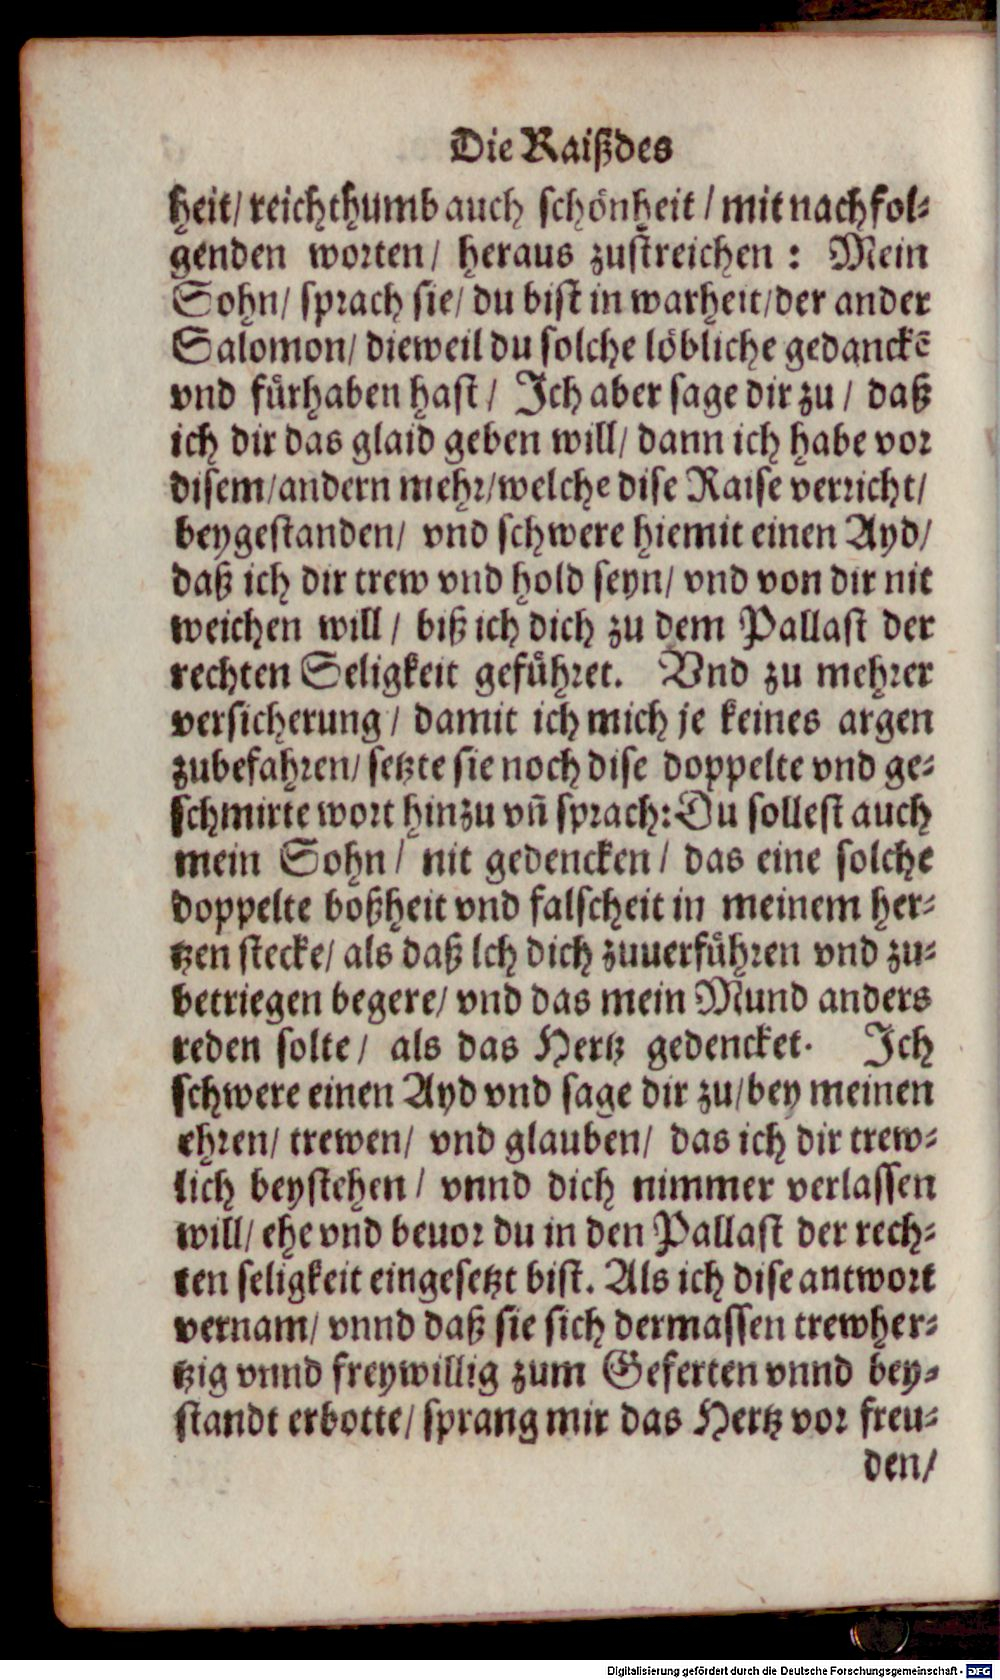 Die Raißdes
heit/ reichthumb auch schönheit / mit nachfol-
genden worten/ heraus zustreichen : Mein
Sohn/ sprach sie/ du bist in warheit/der ander
Salomon/ dieweil du solche löbliche gedanckē
vnd fürhaben hast / Ich aber sage dir zu / daß
ich dir das glaid geben will/ dann ich habe vor
disem/andern mehr/welche dise Raise verricht/
beygestanden/ vnd schwere hiemit einen Ayd/
daß ich dir trew vnd hold seyn/ vnd von dir nit
weichen will / biß ich dich zu dem Pallast der
rechten Seligkeit geführet. Vnd zu mehrer
versicherung / damit ich mich je keines argen
zubefahren/ setzte sie noch dise doppelte vnd ge-
schmirte wort hinzu vñ sprach: Du sollest auch
mein Sohn / nit gedencken / das eine solche
doppelte boßheit vnd falscheit in meinem her-
tzen stecke/ als daß Ich dich zuuerführen vnd zu-
betriegen begere/ vnd das mein Mund anders
reden solte / als das Hertz gedencket. Ich
schwere einen Ayd vnd sage dir zu/bey meinen
ehren/ trewen/ vnd glauben/ das ich dir trew-
lich beystehen / vnnd dich nimmer verlassen
will/ ehe vnd beuor du in den Pallast der rech-
ten seligkeit eingesetzt bist. Als ich dise antwort
vernam/ vnnd daß sie sich dermassen trewher-
tzig vnnd freywillig zum Geferten vnnd bey-
standt erbotte/ sprang mir das Hertz vor freu-
den/
Digitalisierung gefördert durch die Deutsche Forschungsgemeinschaft - DFG